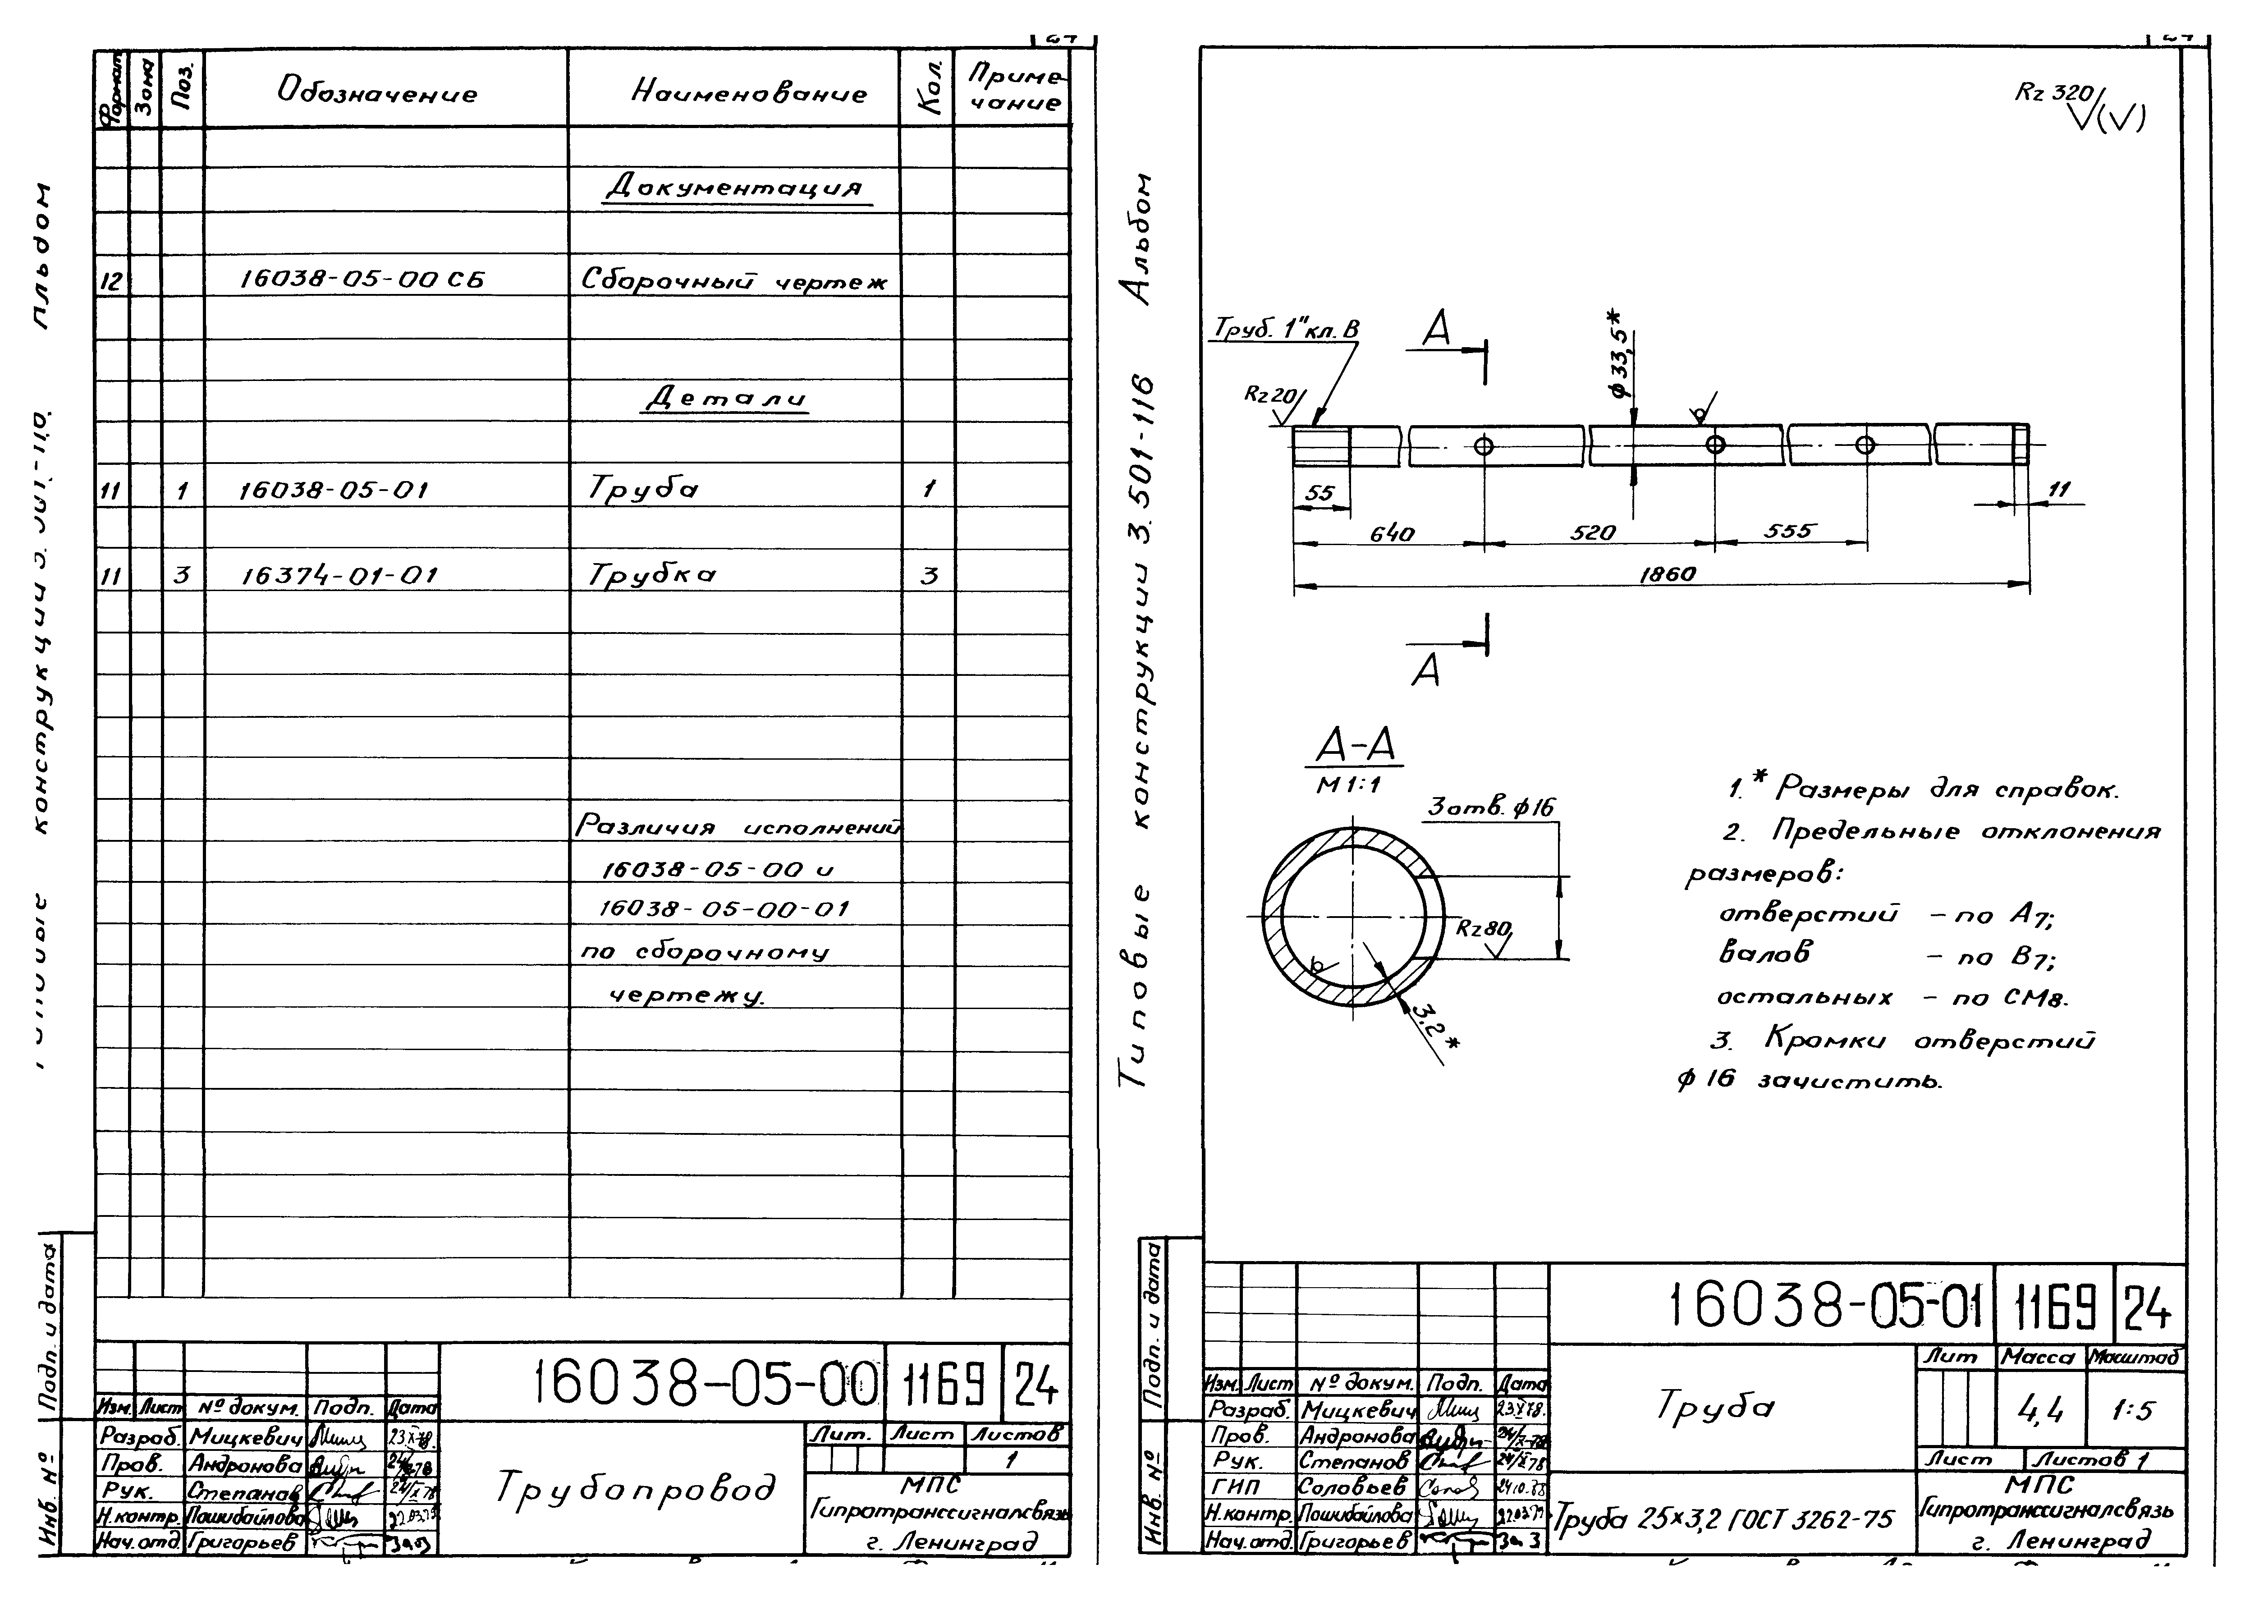 Формат Зона Поз. Обозначение Наименование Кол. Приме-
чание
Документация
12 16038-05-00 СБ Сборочный чертеж
Детали
11 1 16038-05-01 Труба 1
11 3 16374-01-01 Трубка 3
Различия исполнений
16038-05-00 и
16038-05-00-01
по сборочному
чертежу.
Подп. и дата
Инв. №
16038-05-00 1169 24
Изм. Лист № докум. Подп. Дата
Разраб. Мицкевич 23.X.78.
Пров. Андронова
Рук. Степанов
Н.контр. Пошибайлова
Нач.отд. Григорьев
Трубопровод
Лит. Лист Листов
1
МПС
Гипротранссигналсвязь
г. Ленинград
Типовые конструкции 3.501-116 Альбом
Rz 320
Труб. 1" кл. В
А
ϕ33,5*
Rz20
55
11
640
520
555
1860
А
А-А
М 1:1
3 отв. ϕ16
Rz80
3,2*
1.* Размеры для справок.
2. Предельные отклонения
размеров:
отверстий - по А7;
валов - по В7;
остальных - по СМ8.
3. Кромки отверстий
ϕ16 зачистить.
Подп. и дата
Инв. №
16038-05-01 1169 24
Изм. Лист № докум. Подп. Дата
Разраб. Мицкевич 23.X.78.
Пров. Андронова
Рук. Степанов
ГИП Соловьев 24.10.78
Н.контр. Пошибайлова
Нач.отд. Григорьев
Труба
Лит Масса Масштаб
4,4 1:5
Лист Листов 1
Труба 25×3,2 ГОСТ 3262-75
МПС
Гипротранссигналсвязь
г. Ленинград